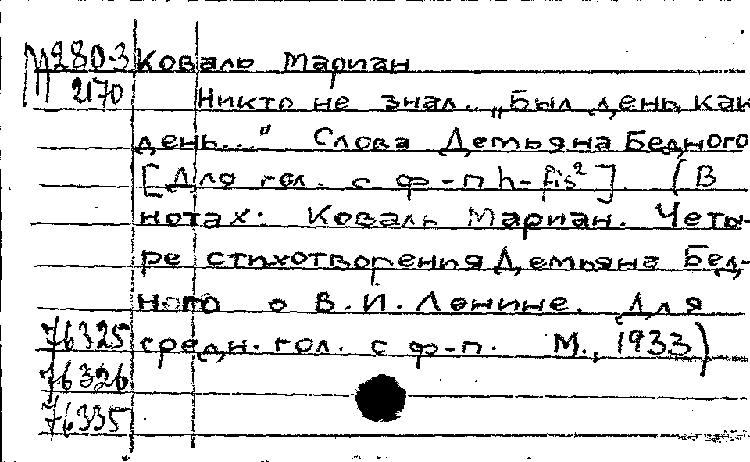 М280-3 Коваль Мариан
2170 Никто не знал. „Был день как
день..." Слова Демьяна Бедного
[Для гол. с ф-п h-fis²]. (В
нотах: Коваль Мариан. Четы-
ре стихотворения Демьяна Бед-
ного о В.И. Ленине. Для
76325 средн. гол. с ф-п. М., 1933)
76326
76335